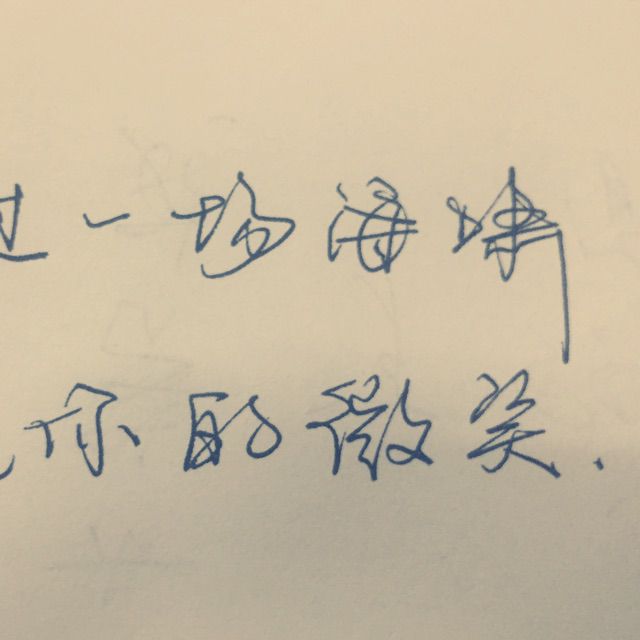 过一场海啸
你的微笑.